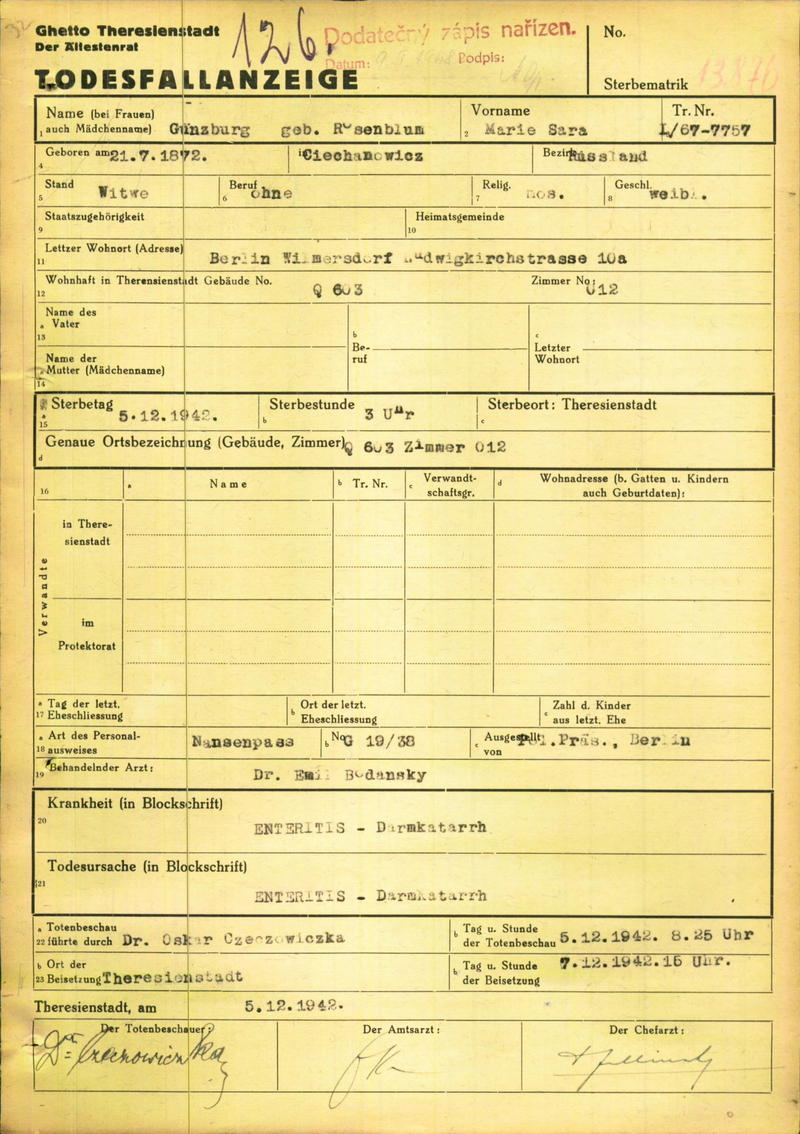 Ghetto Theresienstadt
Der Ältestenrat
TODESFALLANZEIGE
126.
Dodatečný zápis nařízen.
Datum:
Podpis:
No.
Sterbematrik
Name (bei Frauen)
1 auch Mädchenname) Günzburg geb. Rosenblum
Vorname
2 Marie Sara
Tr. Nr.
I/67-7757
Geboren am 21.7.1872.
4
i Ciechanowicz
Bezirk Russland
Stand
5 Witwe
Beruf
6 ohne
Relig.
7 mos.
Geschl.
8 weibl.
Staatszugehörigkeit
9
Heimatsgemeinde
10
Lettzer Wohnort (Adresse)
11 Berlin Wilmersdorf Ludwigkirchstrasse 10a
Wohnhaft in Therensienstadt Gebäude No.
12 Q 603
Zimmer No: 012
Name des
a Vater
13
Name der
Mutter (Mädchenname)
14
b
Be-
ruf
c
Letzter
Wohnort
Sterbetag
a
15 5.12.1942.
Sterbestunde
b 3 Uhr
Sterbeort: Theresienstadt
c
Genaue Ortsbezeichnung (Gebäude, Zimmer) Q 603 Zimmer 012
d
16
a Name
b Tr. Nr.
c Verwandt-
schaftsgr.
d Wohnadresse (b. Gatten u. Kindern
auch Geburtdaten):
Verwandte
in There-
sienstadt
im
Protektorat
a Tag der letzt.
17 Eheschliessung
b Ort der letzt.
Eheschliessung
c Zahl d. Kinder
aus letzt. Ehe
a Art des Personal-
18 ausweises Nansenpass
b No G 19/38
c Ausgestellt
von Pol.Präs., Berlin
19 Behandelnder Arzt:
Dr. Emil Budansky
Krankheit (in Blockschrift)
20
ENTERITIS - Darmkatarrh
Todesursache (in Blockschrift)
21
ENTERITIS - Darmkatarrh
a Totenbeschau
22 führte durch Dr. Oskar Czeczowiczka
b Tag u. Stunde
der Totenbeschau 5.12.1942. 8.25 Uhr
b Ort der
23 Beisetzung Theresienstadt
b Tag u. Stunde
der Beisetzung 7.12.1942.15 Uhr.
Theresienstadt, am 5.12.1942.
Der Totenbeschauer:
Der Amtsarzt:
Der Chefarzt: